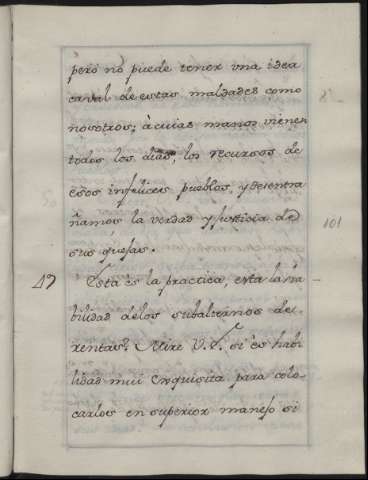 pero no puede tener vna idea
caval de estas maldades como
nosotros; à cuias manos vienen
todos los dias, los recursos de
esos infelices pueblos, y desentra
ñamos la verdad y Justicia de
sus quejas.
47 Esta es la practica, esta la ha
bilidad delos subalternos de
rentas. Mire V.S. si es habi
lidad mui Exquisita para colo-
carlos en superior manejo si
101